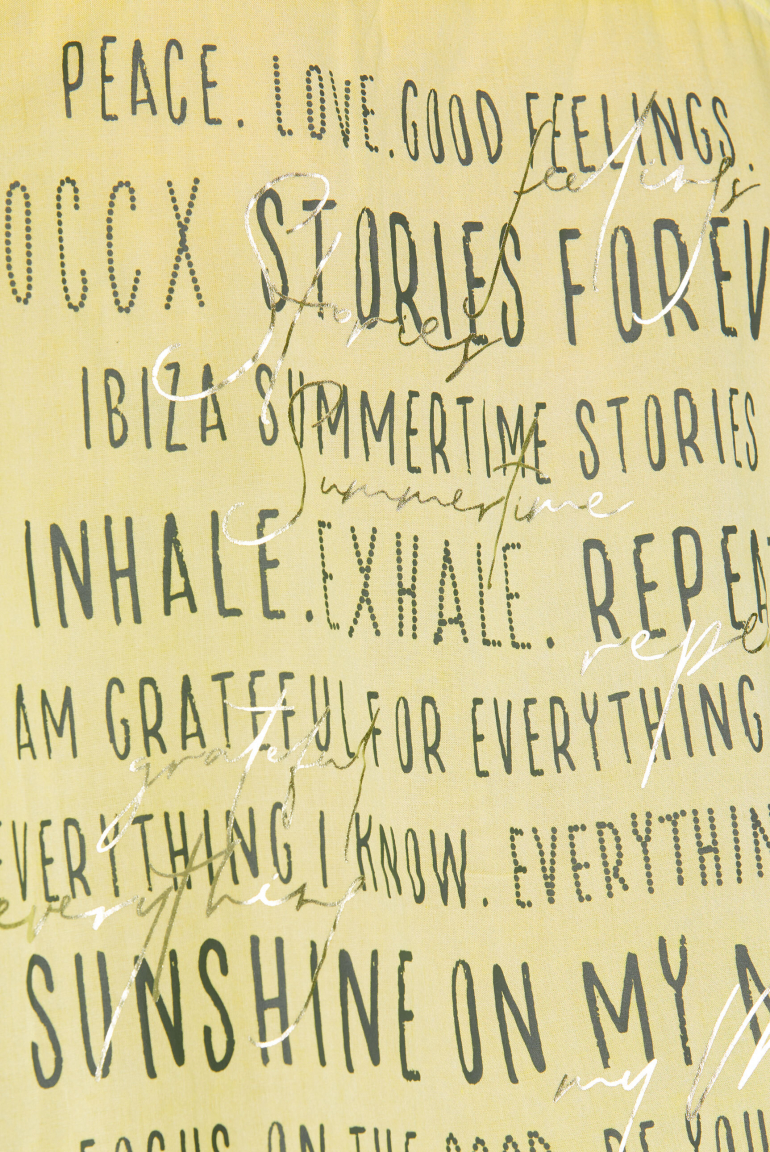 PEACE. LOVE. GOOD FEELINGS.
feelings
OCCX STORIES FOREV
Stories
IBIZA SUMMERTIME STORIES
Summertime
INHALE. EXHALE. REPEA
repe
AM GRATEFUL FOR EVERYTHING
grateful
EVERYTHING I KNOW. EVERYTHIN
everything
SUNSHINE ON MY
my
FOCUS ON THE GOOD. BE YOU